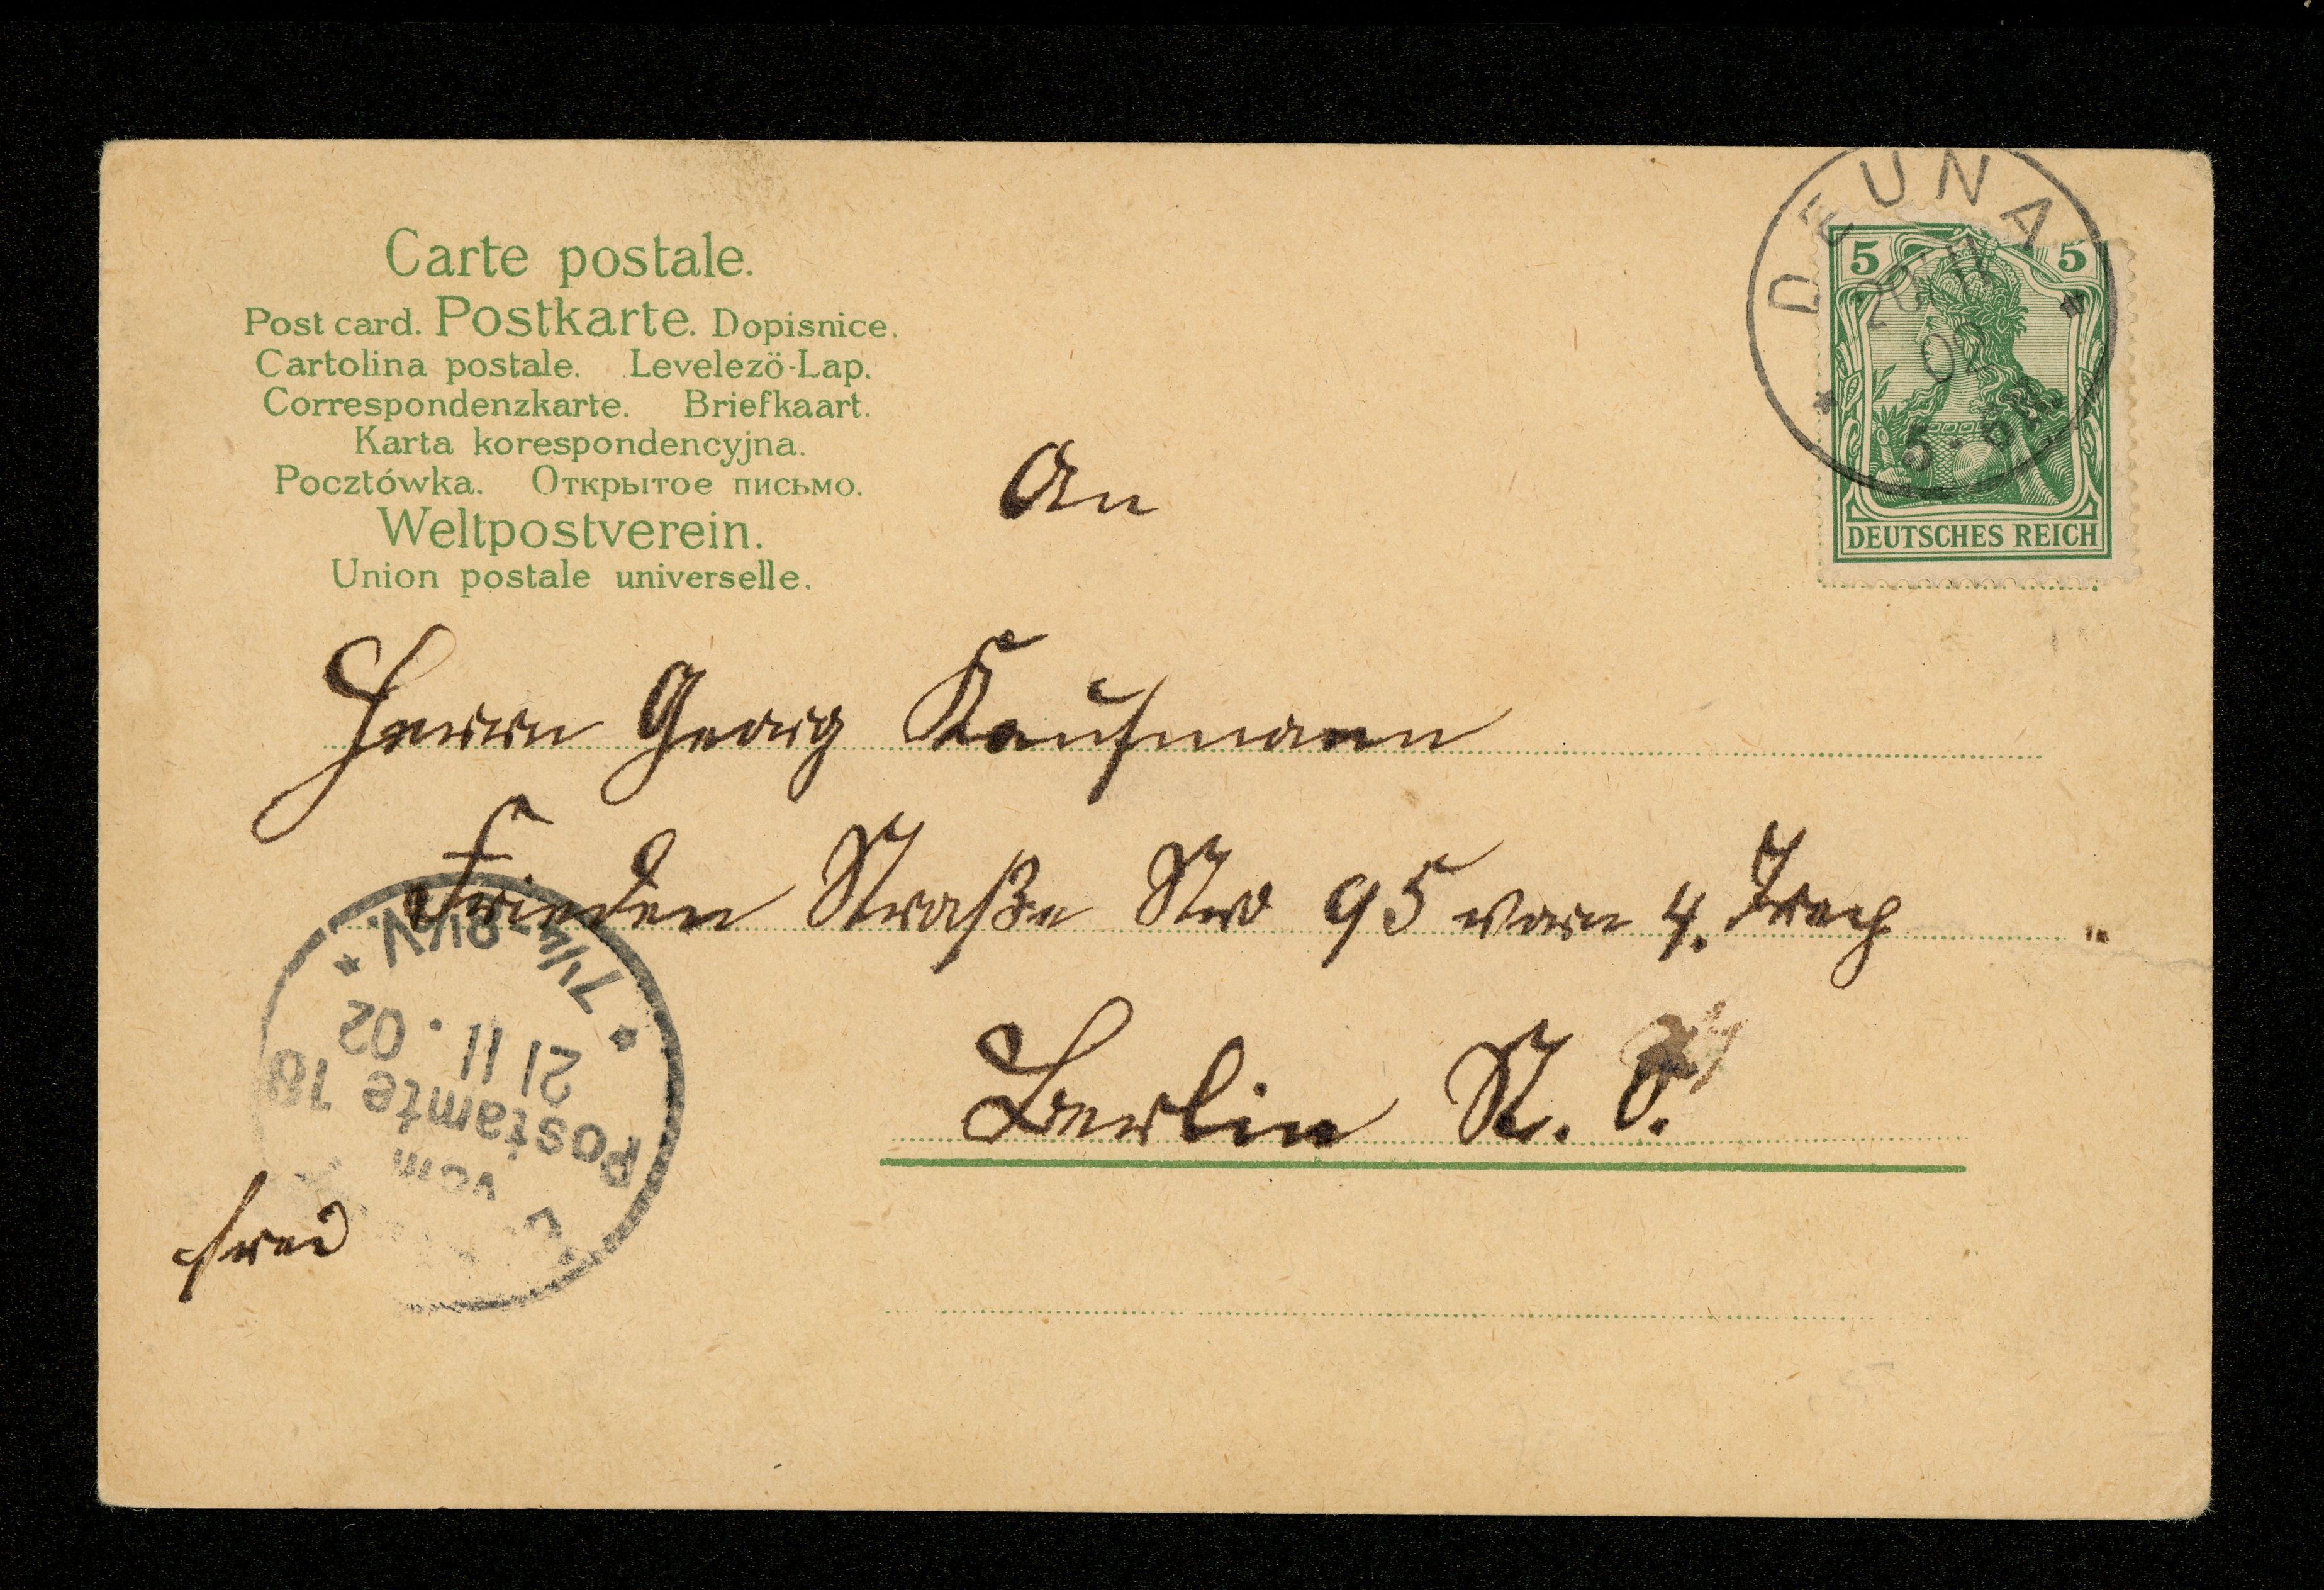 Carte postale.
Post card. Postkarte. Dopisnice.
Cartolina postale. Levelező-Lap.
Correspondenzkarte. Briefkaart.
Karta korespondencyjna.
Pocztówka. Открытое письмо.
Weltpostverein.
Union postale universelle.
DEUNA
20 11
02
5-6N.
5 5
DEUTSCHES REICH
An
Herrn Georg Kaufmann
Frieden Straße Nro 95 vorn 4. Trep
Berlin N. O.
frei
vom
Postamte 18
21 11. 02
* 7¼-8½V. *